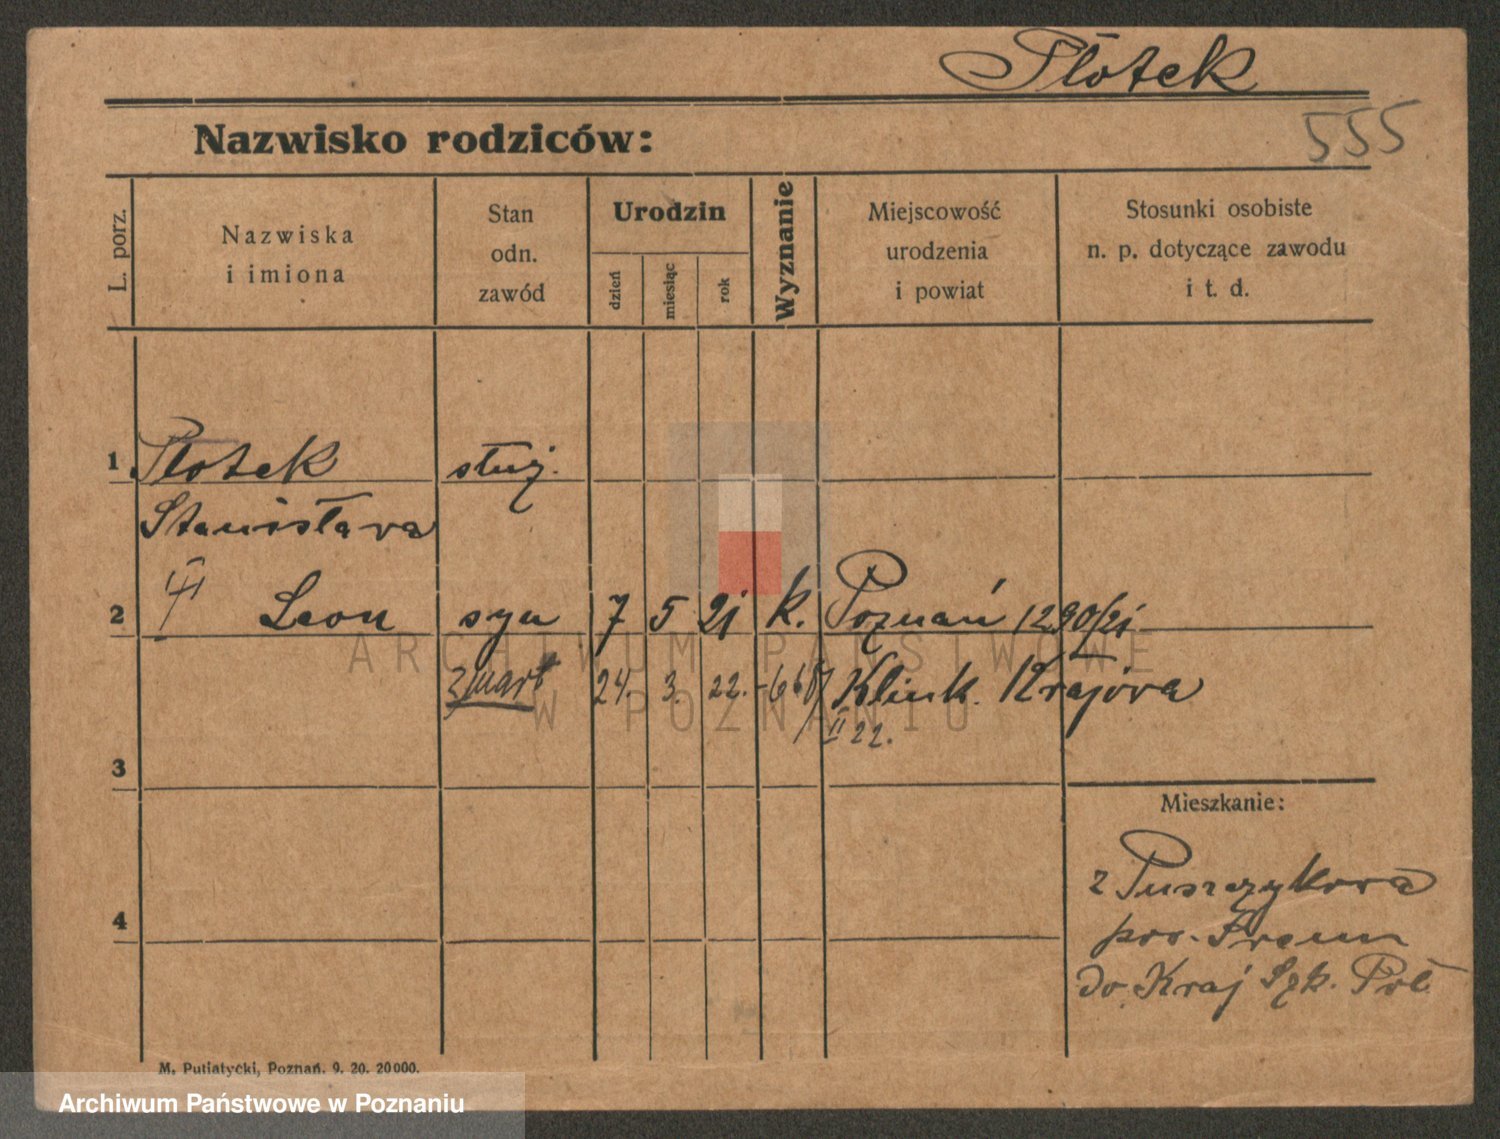 Płotek
555
Nazwisko rodziców:
L. porz.
Nazwiska
i imiona
Stan
odn.
zawód
Urodzin
dzień
miesiąc
rok
Wyznanie
Miejscowość
urodzenia
i powiat
Stosunki osobiste
n. p. dotyczące zawodu
i t. d.
1 Płotek służ.
Stanisława
2 Leon syn 7 5 21 k. Poznań 1290/21
zmarł 24. 3. 22. Klinik. Krajova
II 22.
3
4
Mieszkanie:
z Puszczykova
pow. Śrem
do Kraj Szk. Poł
M. Putiatycki, Poznań. 9. 20. 20000.
ARCHIWUM PAŃSTWOWE
W POZNANIU
Archiwum Państwowe w Poznaniu